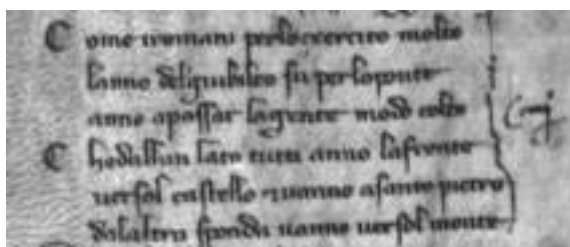 Come iromani perloexercito molto
lanno delgiubileo su perloponte
anno apassar lagente modo colto
Chedallun lato tutti anno lafronte
uersol castello euanno asanto pietro
dalaltra sponda uanno uersol monte